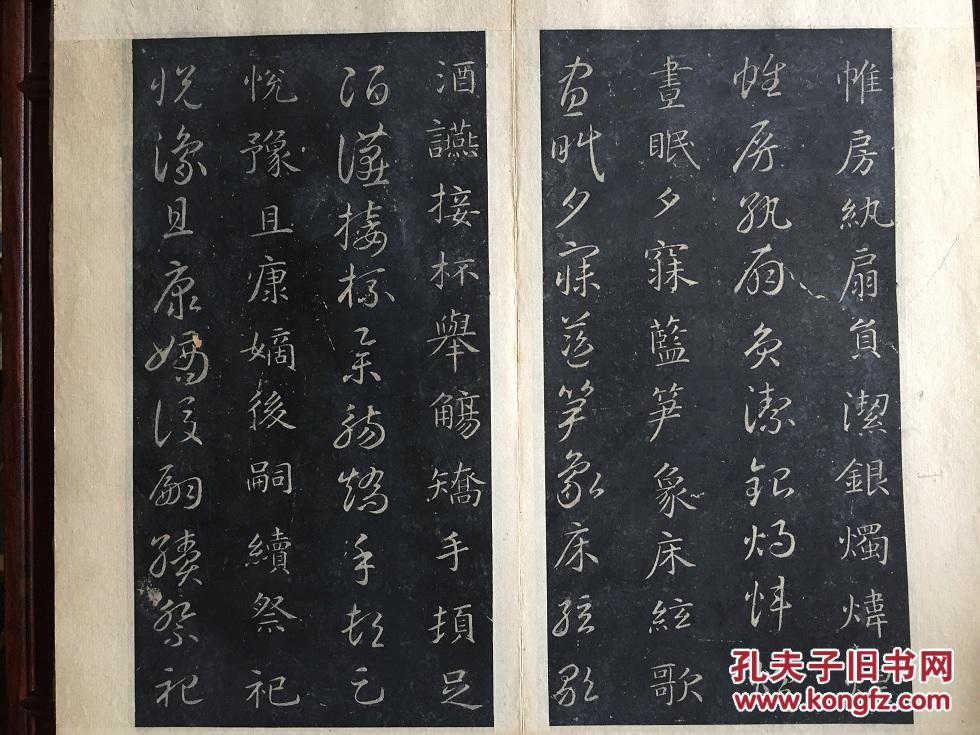 帷房紈扇員潔銀燭煒煌
帷房紈扇員潔銀燭煒煌
晝眠夕寐藍笋象床絃歌
晝眠夕寐藍笋象床絃歌
酒讌接杯舉觴矯手頓足
酒讌接杯舉觴矯手頓足
悅豫且康嫡後嗣續祭祀
悅豫且康嫡後嗣續祭祀
孔夫子旧书网
www.kongfz.com